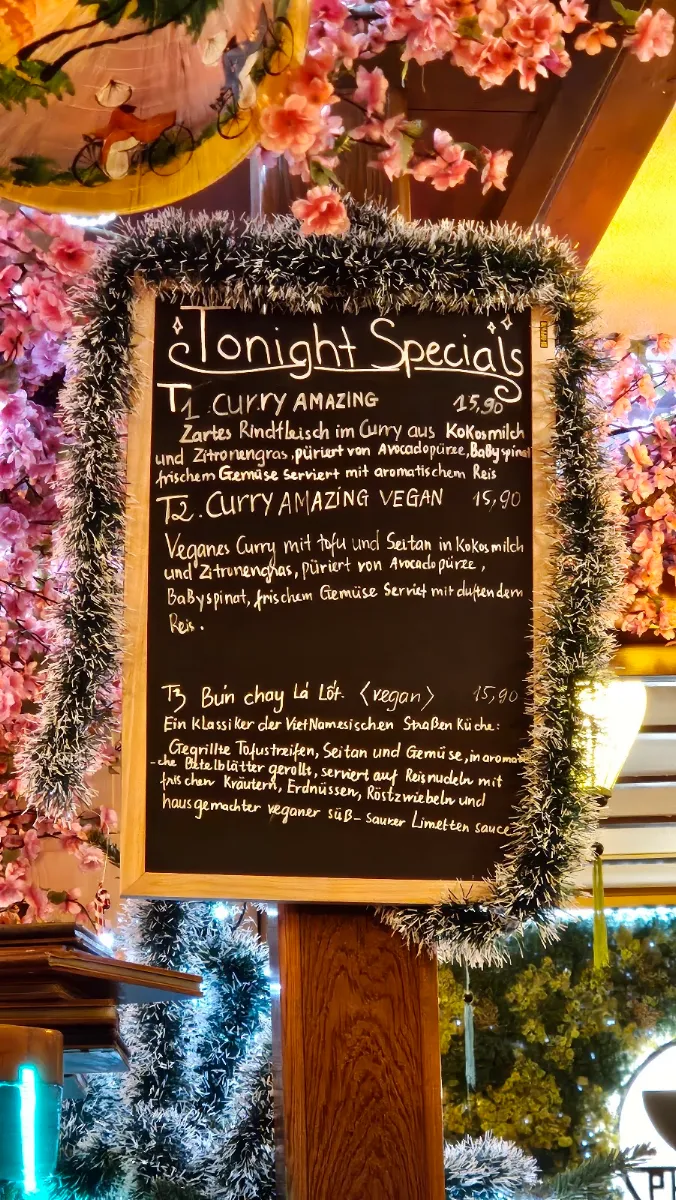 Tonight Specials
T1. CURRY AMAZING 15,90
Zartes Rindfleisch im Curry aus Kokosmilch
und Zitronengras, püriert von Avocadopürze, Babyspinat
frischem Gemüse serviert mit aromatischem Reis
T2. CURRY AMAZING VEGAN 15,90
Veganes Curry mit tofu und Seitan in Kokosmilch
und Zitronengras, püriert von Avocadopürze,
Babyspinat, frischem Gemüse Serviet mit duftendem
Reis.
T3 Bún chay Lá Lốt. <vegan> 15,90
Ein Klassiker der VietNamesischen Straßen Küche:
Gegrillte Tofustreifen, Seitan und Gemüse, in aromati
-che Betelblätter gerollt, serviert auf Reisnudeln mit
frischen Kräutern, Erdnüssen, Röstzwiebeln und
hausgemachter veganer süß- saurer Limetten sauce